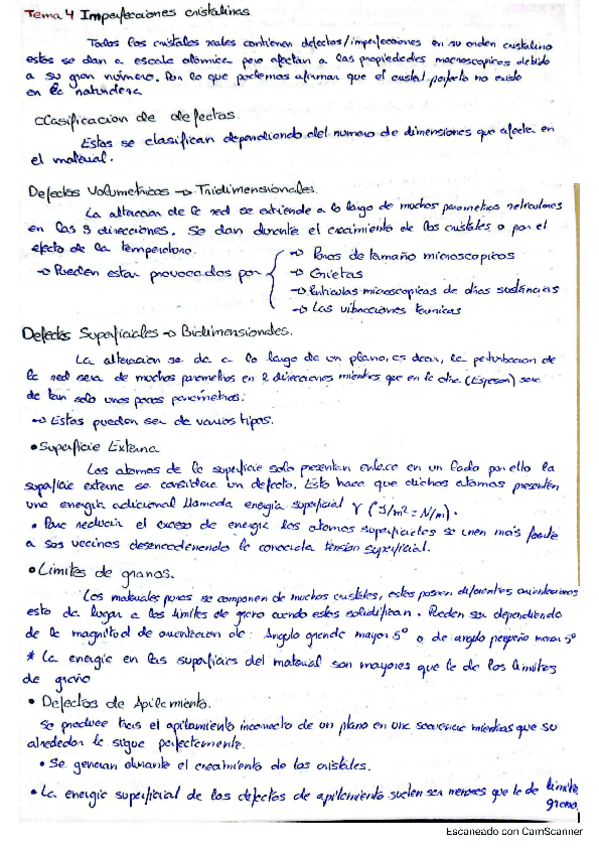 Tema 4 Imperfecciones cristalinas
Todos los cristales reales contienen defectos/imperfecciones en su orden cristalino
estos se dan a escala atómica pero afectan a las propiedades macroscopicas debido
a su gran número. Por lo que podemos afirmar que el cristal perfecto no existe
en la naturaleza
Clasificacion de defectos.
Estos se clasifican dependiendo del numero de dimensiones que afecte en
el material.
Defectos Volumetricos → Tridimensionales.
La alteracion de la red se extiende a lo largo de muchos parametros reticulares
en las 3 direcciones. Se dan durante el crecimiento de los cristales o por el
efecto de la temperatura.
→ Pueden estar provocados por
→ Poros de tamaño microscopicos
→ Grietas
→ Particulas microscopicas de otras sustancias
→ Las vibraciones termicas
Defectos Superficiales → Bidimensionales.
La alteracion se da a lo largo de un plano, es decir, la perturbacion de
la red sera de muchos parametros en 2 direcciones mientras que en la otra (Espesor) sera
de tan solo unos pocos parametros.
→ Estos pueden ser de varios tipos.
• Superficie Externa
Los atomos de la superficie solo presentan enlace en un lado por ello la
superficie externa se considera un defecto. Esto hace que dichos atomos presenten
una energia adicional llamada energia superficial γ (J/m² = N/m).
• Para reducir el exceso de energia los atomos superficiales se unen mas fuerte
a sus vecinos desencadenando la conocida tensión superficial.
• Limites de granos.
Los materiales puros se componen de muchos cristales, estos poseen diferentes orientaciones
esto da lugar a los limites de grano cuando estos solidifican. Pueden ser dependiendo
de la magnitud de orientacion de: Angulo grande mayor 5° o de angulo pequeño menor 5°
* La energia en las superficies del material son mayores que la de los limites
de grano
• Defectos de Apilamiento.
Se produce tras el apilamiento incorrecto de un plano en una secuencia mientras que su
alrededor la sigue perfectamente.
• Se generan durante el crecimiento de los cristales.
• La energia superficial de los defectos de apilamiento suelen ser menores que la de limite
grano.
Escaneado con CamScanner